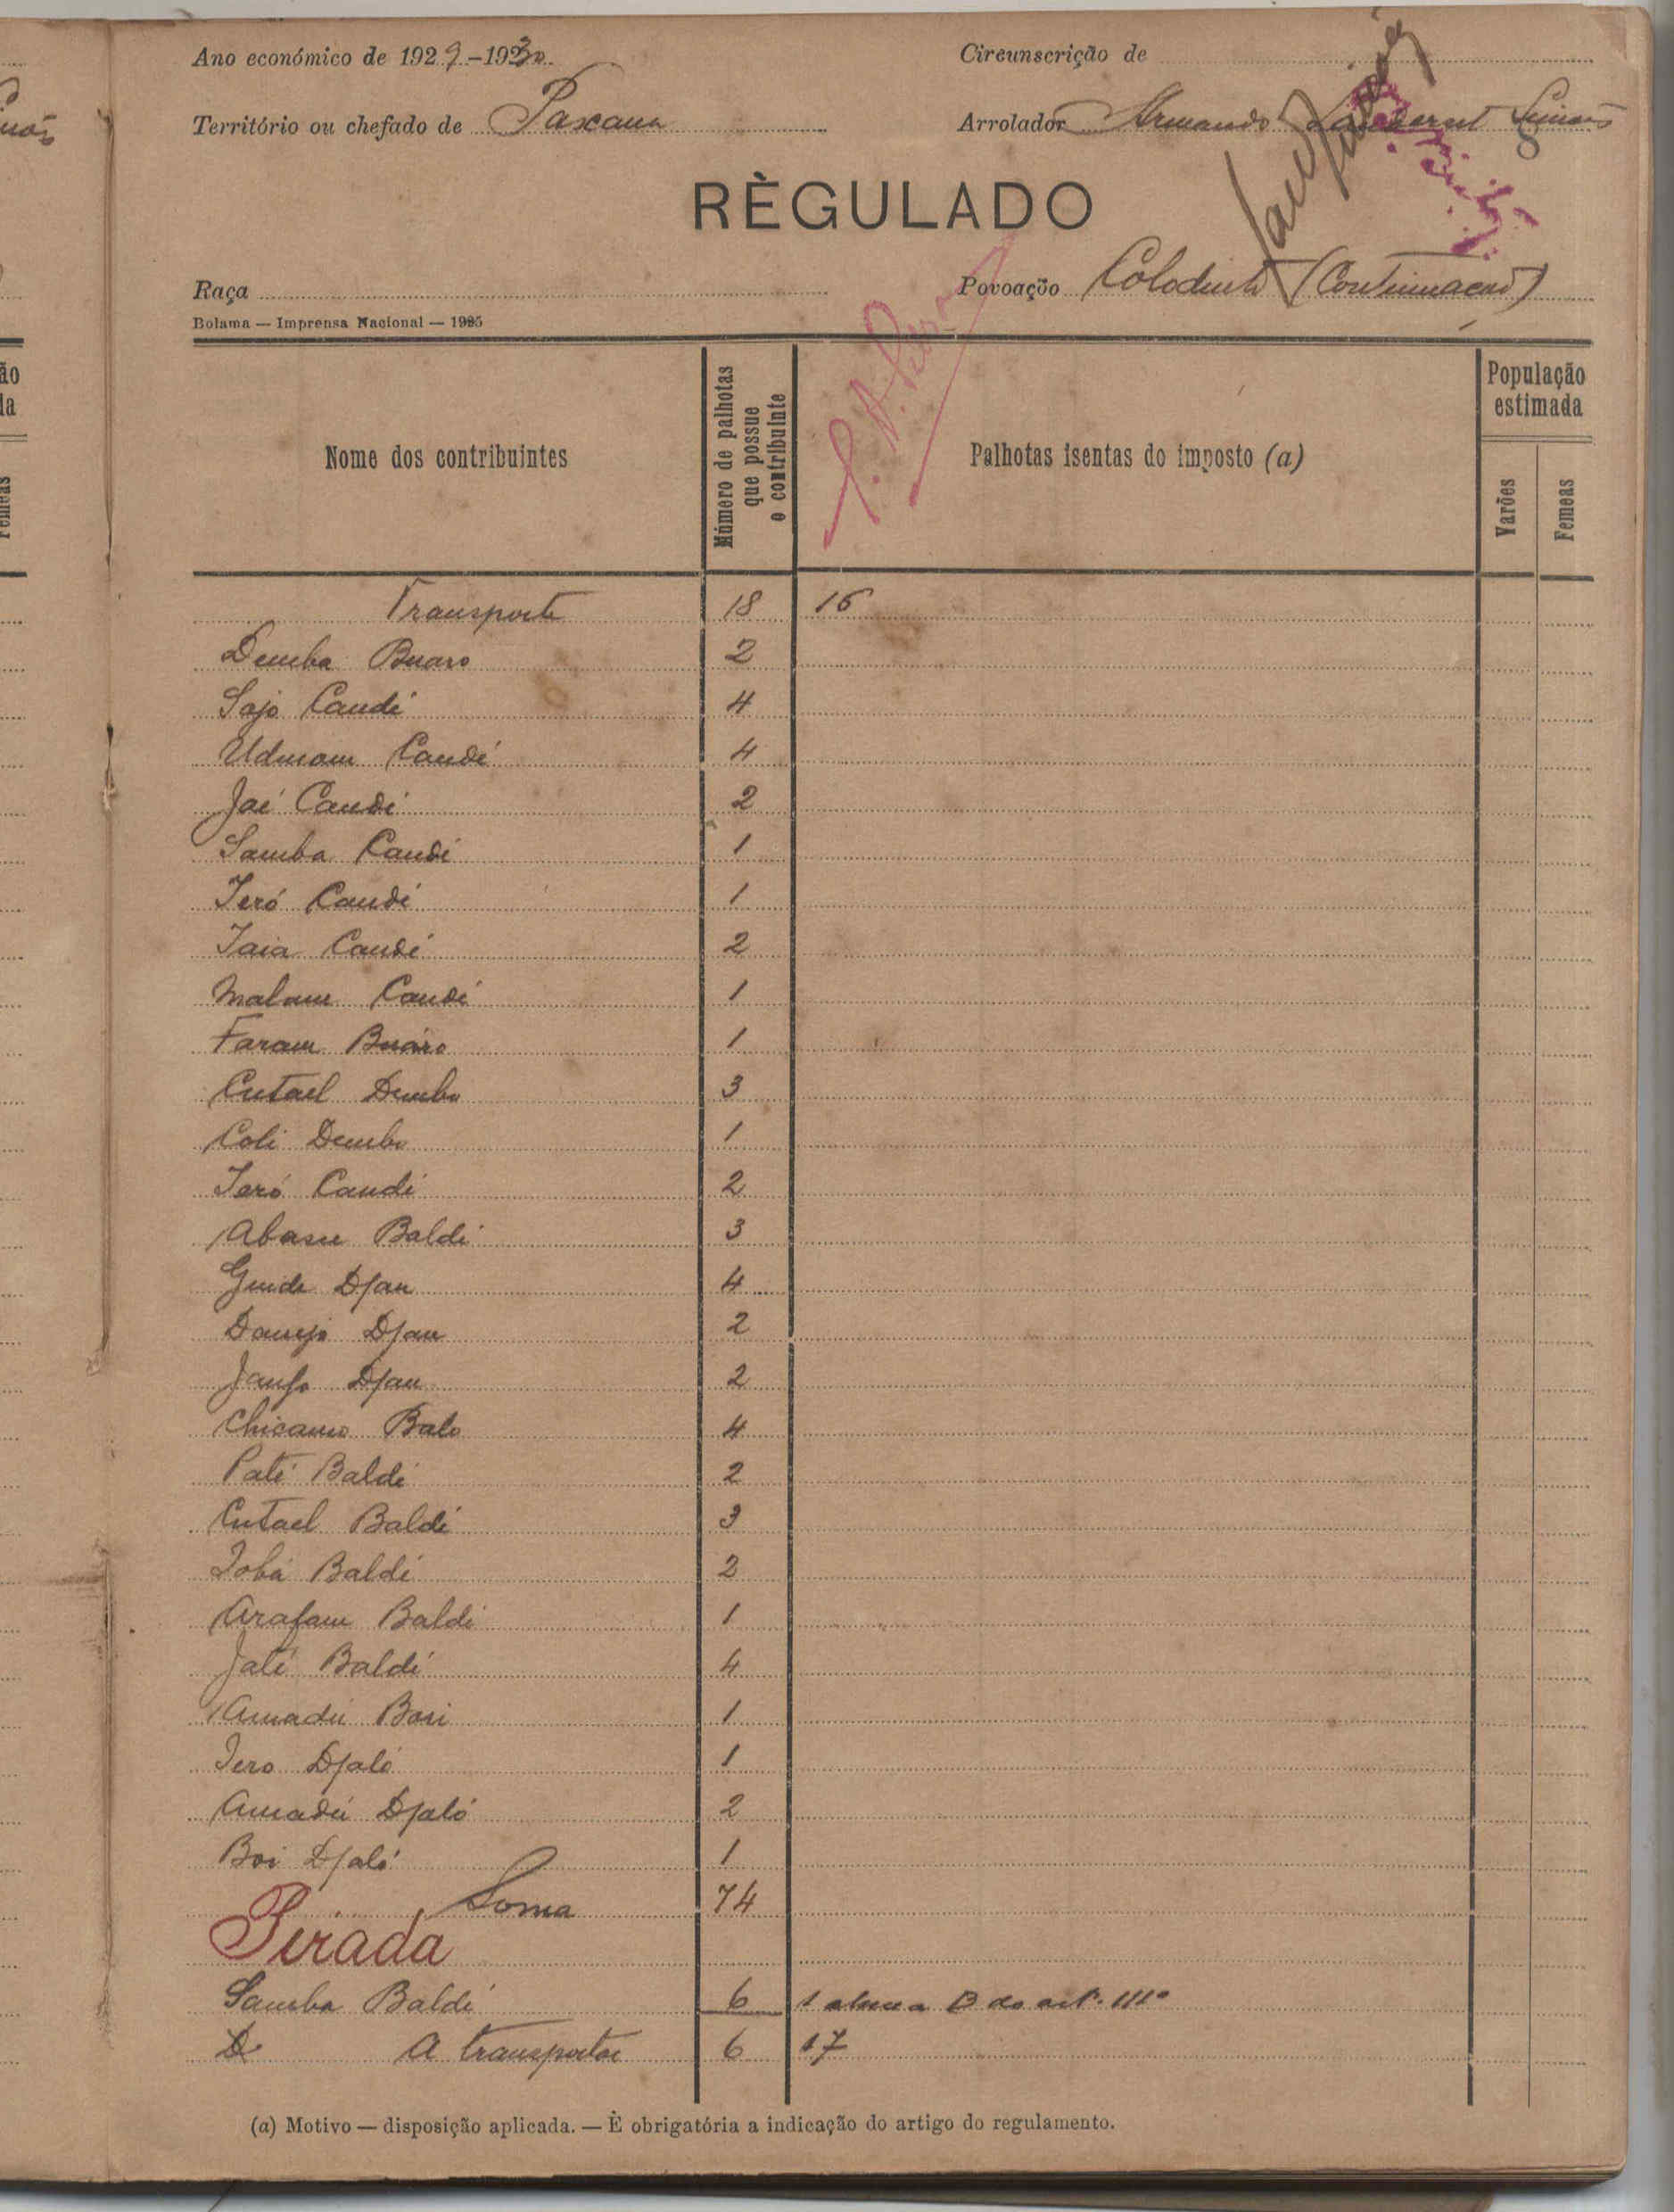 Ano económico de 1929-1930
Circunscrição de
Território ou chefado de Pascana
Arrolador Armando Simões
8
RÈGULADO
Raça
Povoação (Continuacao)
Bolama — Imprensa Nacional — 1925
Nome dos contribuintes
Número de palhotas que possue o contribuinte
Palhotas isentas do imposto (a)
População estimada
Varões
Femeas
Transporte 18 16
Demba Buaro 2
Sajo Candé 4
Udmam Candé 4
Jaé Candé 2
Samba Candé 1
Jeró Candé 1
Jaia Candé 2
Malam Candé 1
Faram Buáro 1
Cutael Demba 3
Coli Demba 1
Jeró Candé 2
Abasse Baldé 3
Guida Djau 4
Danejo Djau 2
Djau 2
Chicamo Balo 4
Paté Baldé 2
Cutael Baldé 3
Iobá Baldé 2
Arafam Baldé 1
Jalé Baldé 4
Amadú Bari 1
Iero Djaló 1
Amadú Djaló 2
Boi Djaló 1
Soma 74
Pirada
Samba Baldé 6 1 alinea B do art. 111º
D A transportar 6 17
(a) Motivo — disposição aplicada. — È obrigatória a indicação do artigo do regulamento.